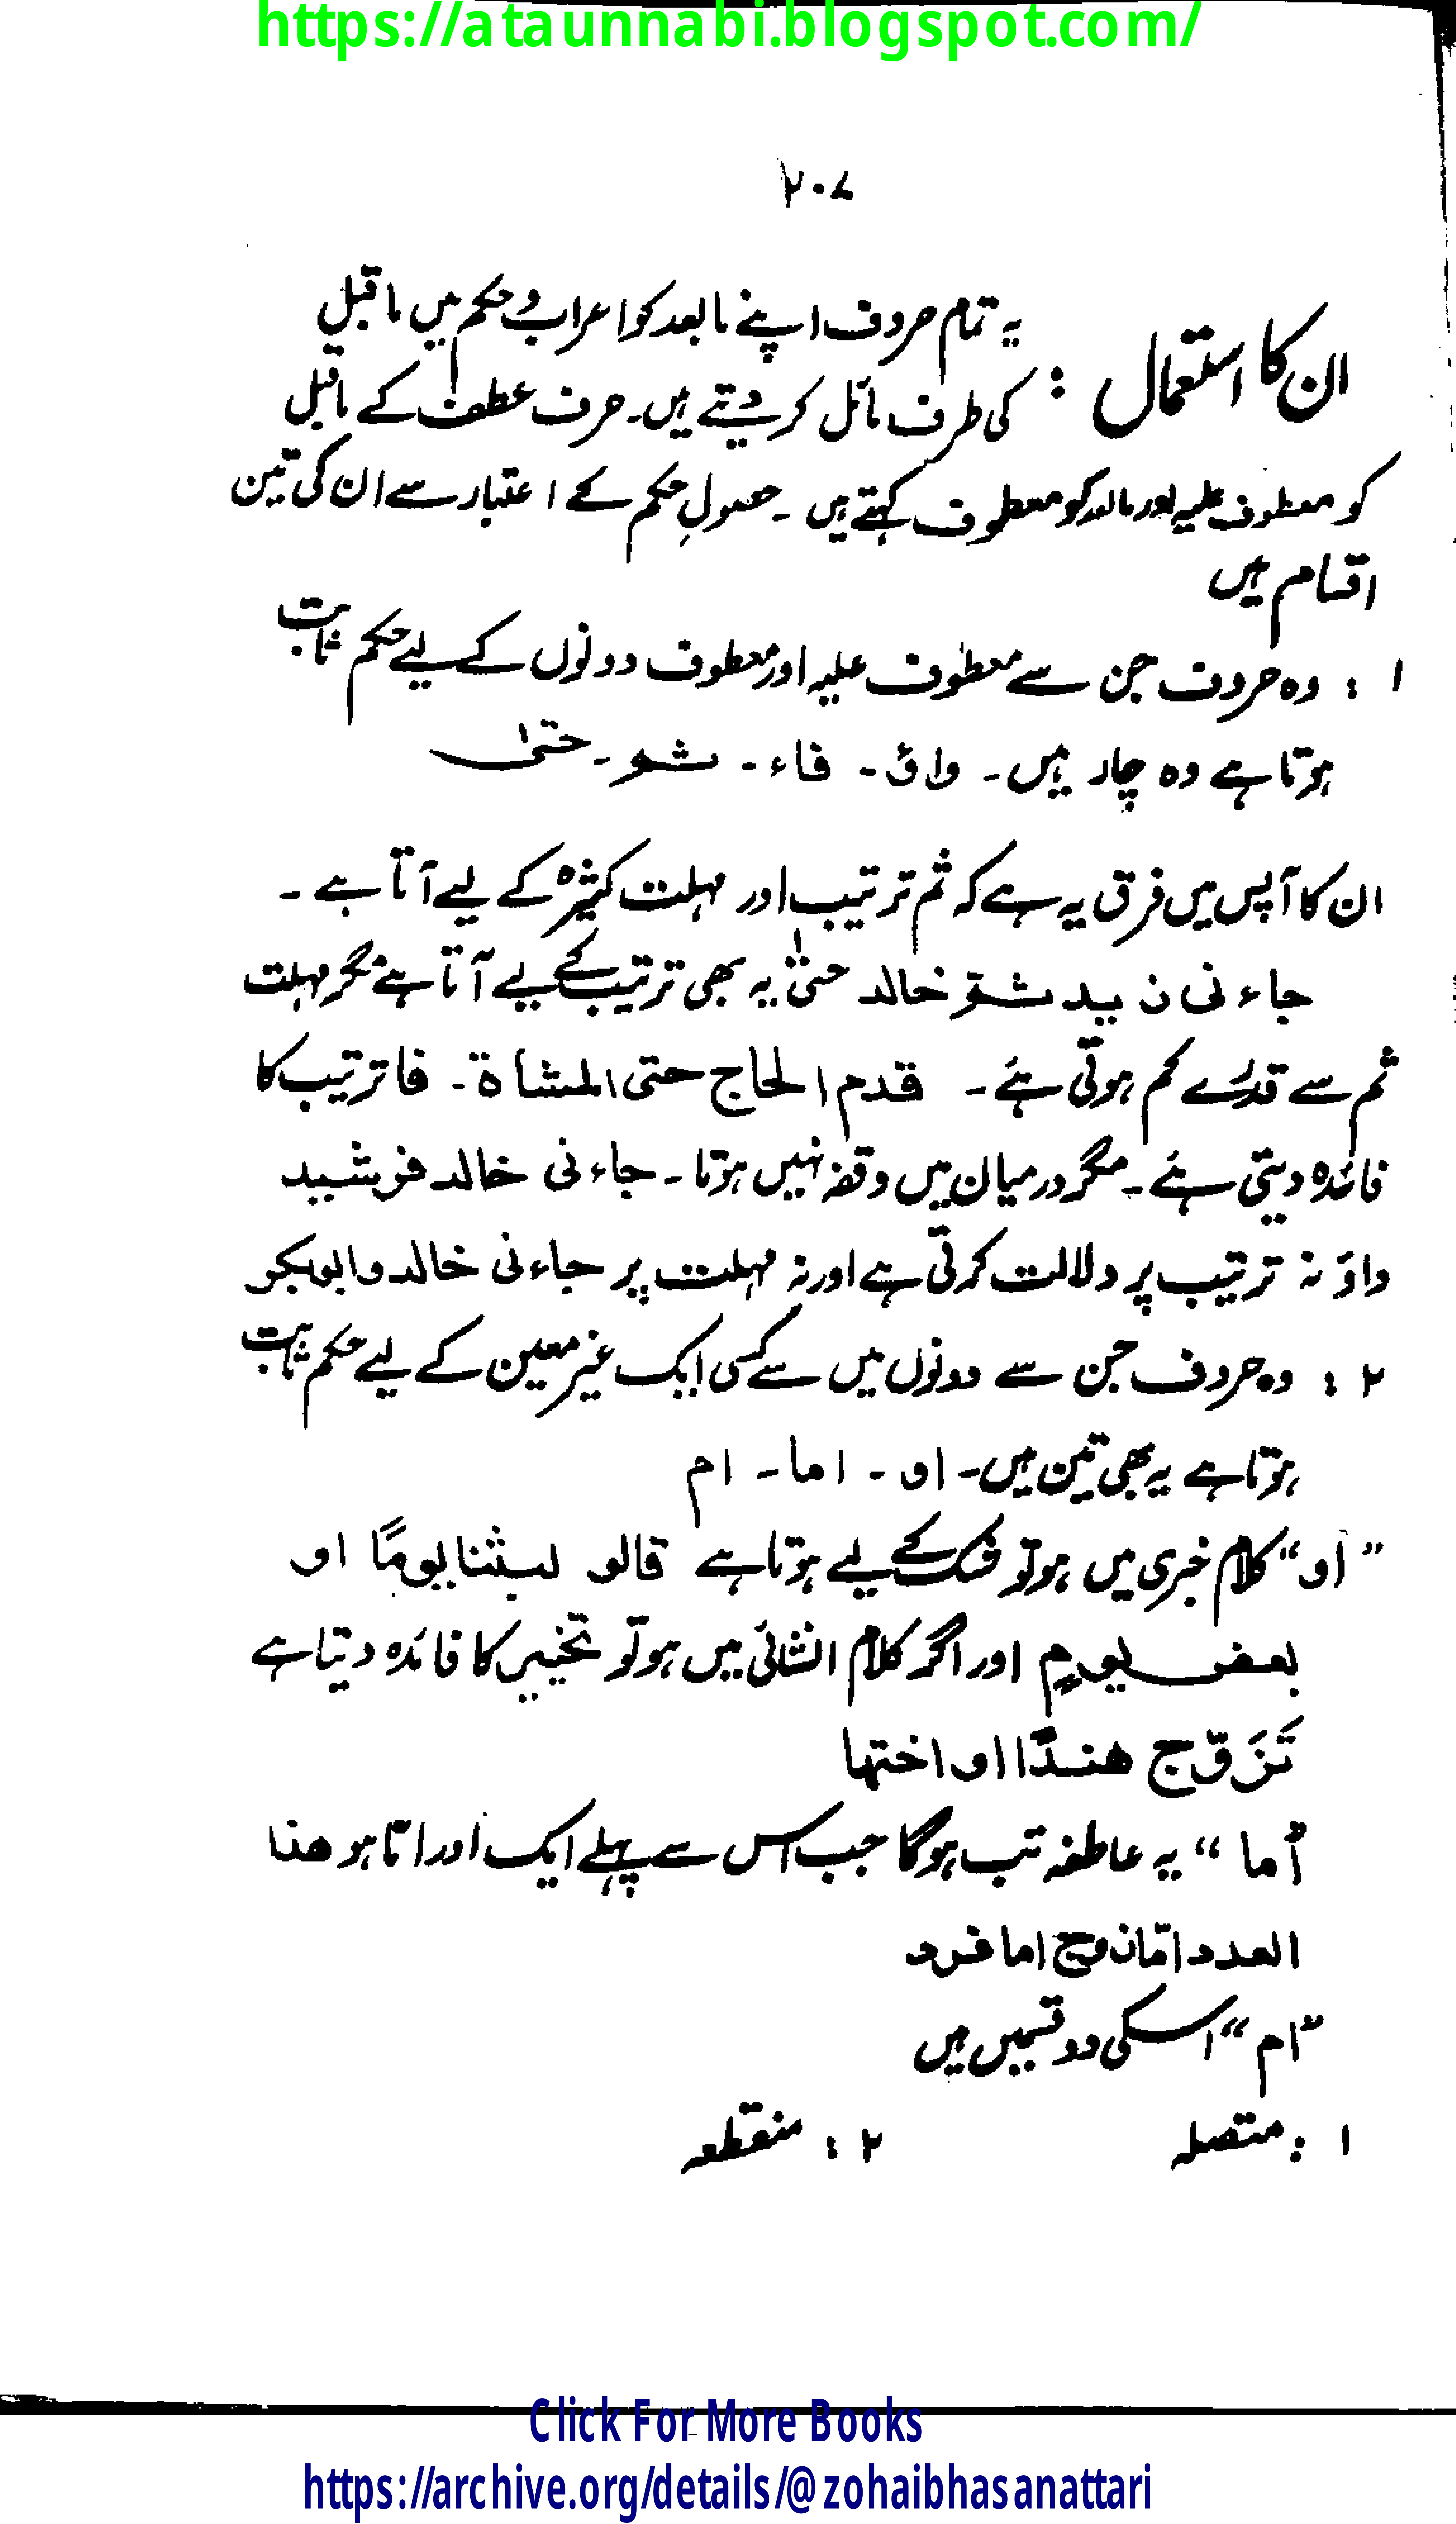 https://ataunnabi.blogspot.com/
۲۰۷
ان کا استعمال : یہ تمام حروف اپنے مابعد کو اعراب و حکم میں ماقبل
کی طرف مائل کر دیتے ہیں۔ حرف عطف کے ماقبل
کو معطوف علیہ اور مابعد کو معطوف کہتے ہیں ۔ حصولِ حکم کے اعتبار سے ان کی تین
اقسام ہیں
۱ : وہ حروف جن سے معطوف علیہ اور معطوف دونوں کے لیے حکم ثابت
ہوتا ہے وہ چار ہیں۔ واؤ ۔ فاء ۔ ثم ۔ حتیٰ
ان کا آپس میں فرق یہ ہے کہ ثم ترتیب اور مہلت کثیرہ کے لیے آتا ہے ۔
جاءنی زید ثم خالد حتیٰ یہ بھی ترتیب کے لیے آتا ہے مگر مہلت
ثم سے قدرے کم ہوتی ہے ۔ قدم الحاج حتی المشاۃ ۔ فا ترتیب کا
فائدہ دیتی ہے ۔ مگر درمیان میں وقفہ نہیں ہوتا ۔ جاءنی خالد فرشید
واؤ نہ ترتیب پر دلالت کرتی ہے اور نہ مہلت پر جاءنی خالد وابوبکر
۲ : وہ حروف جن سے دونوں میں سے کسی ایک غیر معین کے لیے حکم ثابت
ہوتا ہے یہ بھی تین ہیں۔ او ۔ اما ۔ ام
”او“ کلام خبری میں ہو تو شک کے لیے ہوتا ہے قالو لبثنا یومًا او
بعض یومٍ اور اگر کلام انشائی میں ہو تو تخییر کا فائدہ دیتا ہے
تَزَوّج ھندًا او اختھا
”اما“ یہ عاطفہ تب ہوگا جب اس سے پہلے ایک اور امّا ہو ھذا
العدد امّا زوج اما فرد
”ام“ اسکی دو قسمیں ہیں
۱ : متصلہ ۲ : منقطعہ
Click For More Books
https://archive.org/details/@zohaibhasanattari